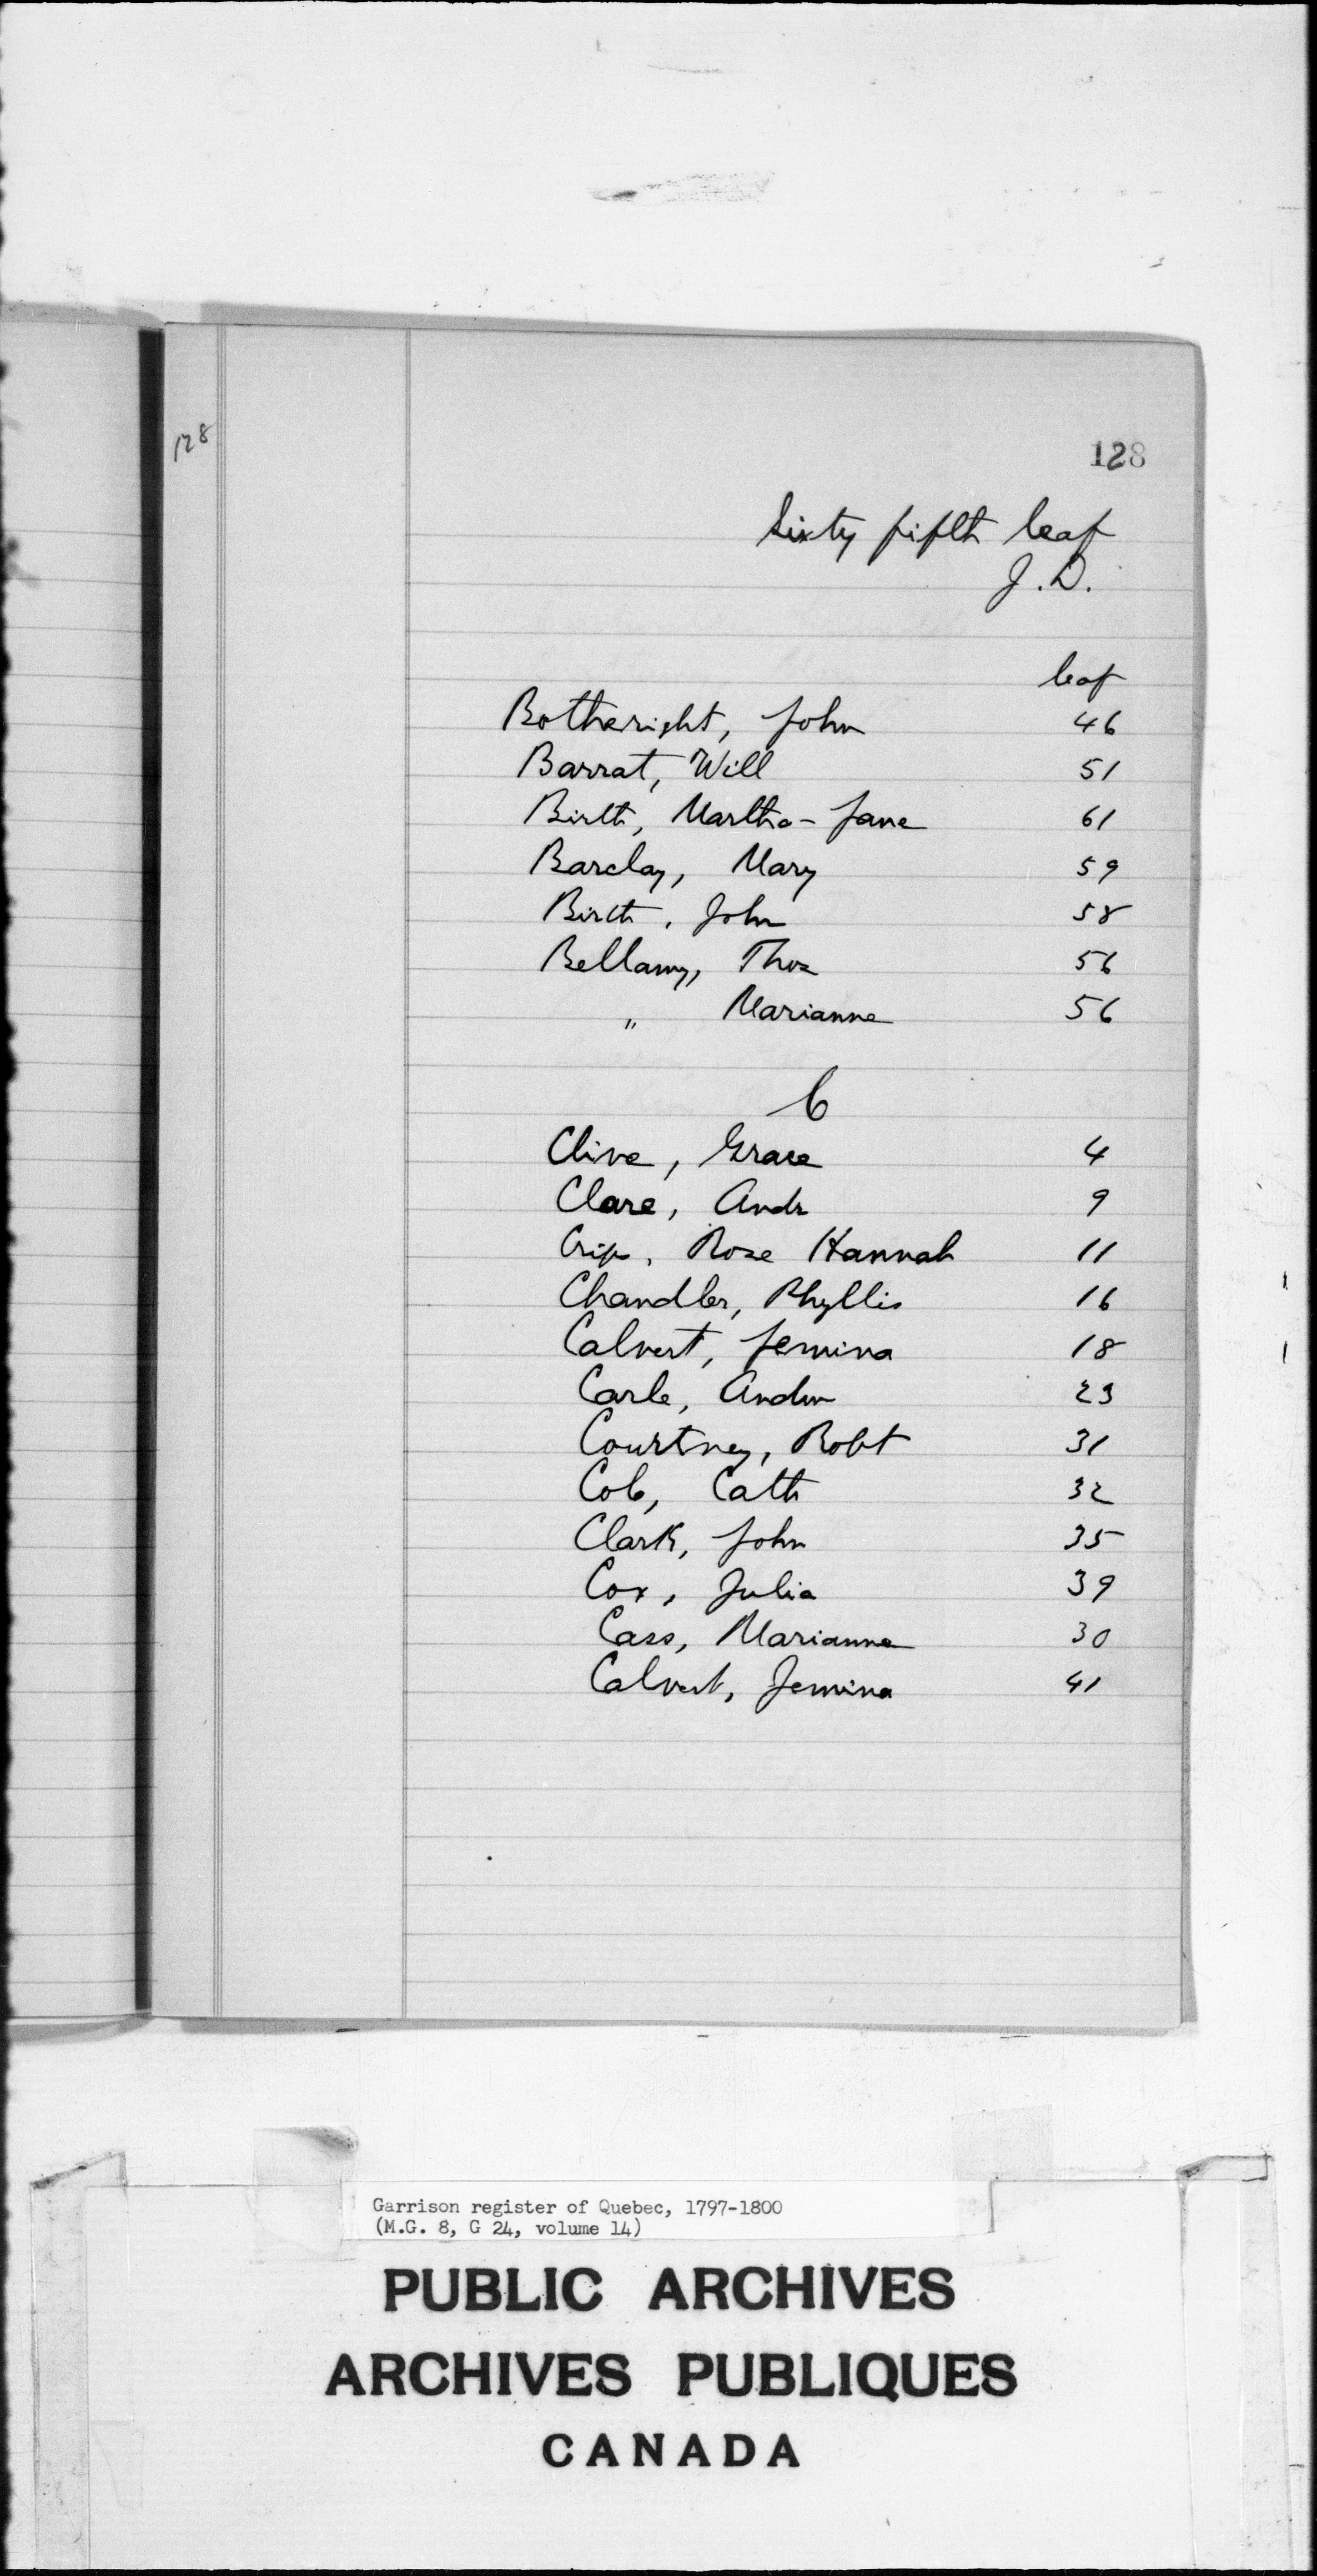 128
128
Sixty fifth leaf
J.D.
leaf
Botheright, John 46
Barrat, Will 51
Birth, Martha-Jane 61
Barclay, Mary 59
Birch, John 58
Bellamy, Thos 56
" Marianne 56
C
Clive, Grace 4
Clare, Andr 9
Crip, Rose Hannah 11
Chandler, Phyllis 16
Calvert, Jemima 18
Carle, Andw 23
Courtney, Robt 31
Cob, Cath 32
Clark, John 35
Cox, Julia 39
Cass, Marianne 30
Calvert, Jemima 41
Garrison register of Quebec, 1797-1800
(M.G. 8, G 24, volume 14)
PUBLIC ARCHIVES
ARCHIVES PUBLIQUES
CANADA